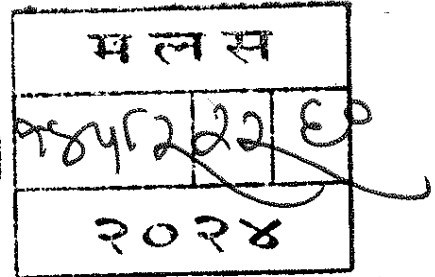 म ल स
१४५८२ २२ ६०
२०२४